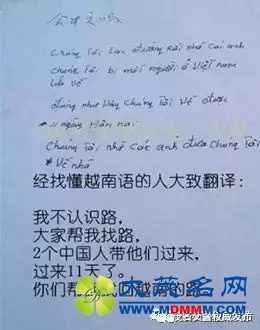 会中文吗
Chúng Tôi Lạc đường Rồi nhờ Các anh
Chúng Tôi bị một người ở Việt nam
Lừa về
đúng như Vậy Chúng Tôi Về được
11 ngày Hôm nai
Chúng Tôi nhờ Các anh đưa Chúng Tôi
Về nhà
经找懂越南语的人大致翻译：
我不认识路，
大家帮我找路，
2个中国人带他们过来，
过来11天了。
你们帮 回越南的路
大藏名网
WWW.MDMMM.COM
茂名交警权威发布